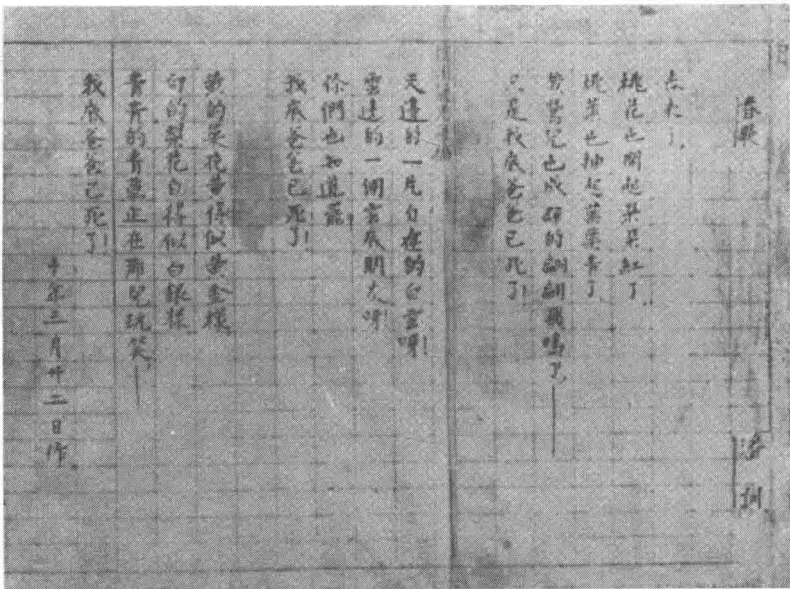 春歌
潘訓
春天了,
桃花也開起朵朵紅了,
桃葉也抽起葉葉青了,
黃鶯兒也成群的翩翩飛鳴了,——
只是我底爸爸已死了!
天邊的一片自在的白雲呀!
雲邊的一個雲底朋友呀!
你們也知道罷,
我底爸爸已死了!
黃的菜花黃得似黃金樣,
白的梨花白得似白銀樣,
青青的青草正在那兒玩笑,——
我底爸爸已死了!
十年三月廿二日作。